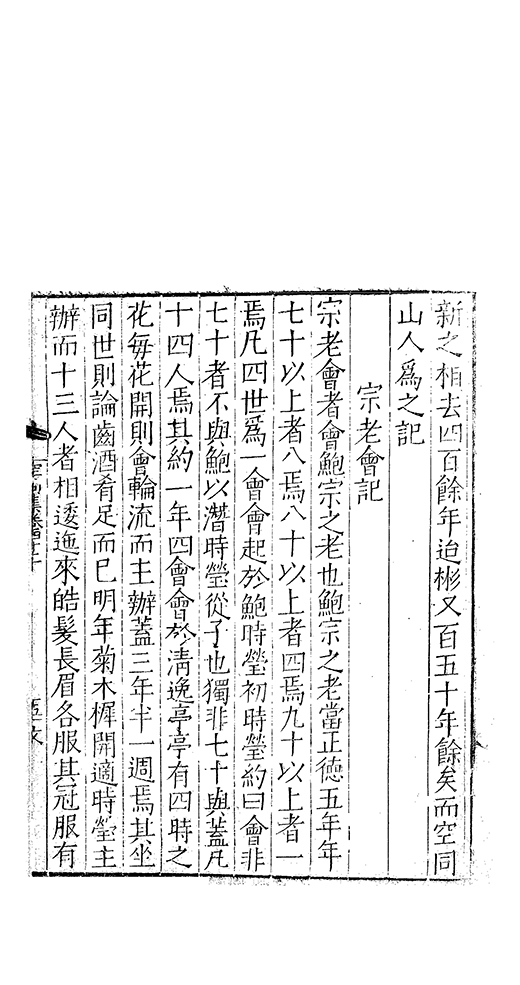 新之相去四百餘年迨彬又百五十年餘矣而空同
山人爲之記
宗老會記
宗老會者會鮑宗之老也鮑宗之老當正德五年年
七十以上者八焉八十以上者四焉九十以上者一
焉凡四世爲一會會起於鮑時瑩初時瑩約曰會非
七十者不與鮑以潛時瑩從子也獨非七十與蓋凡
十四人焉其約一年四會會於清逸亭亭有四時之
花每花開則會輪流而主辦蓋三年半一週焉其坐
同世則論齒酒肴足而已明年菊木樨開適時瑩主
辦而十三人者相逶迤來皓髮長眉各服其冠服有